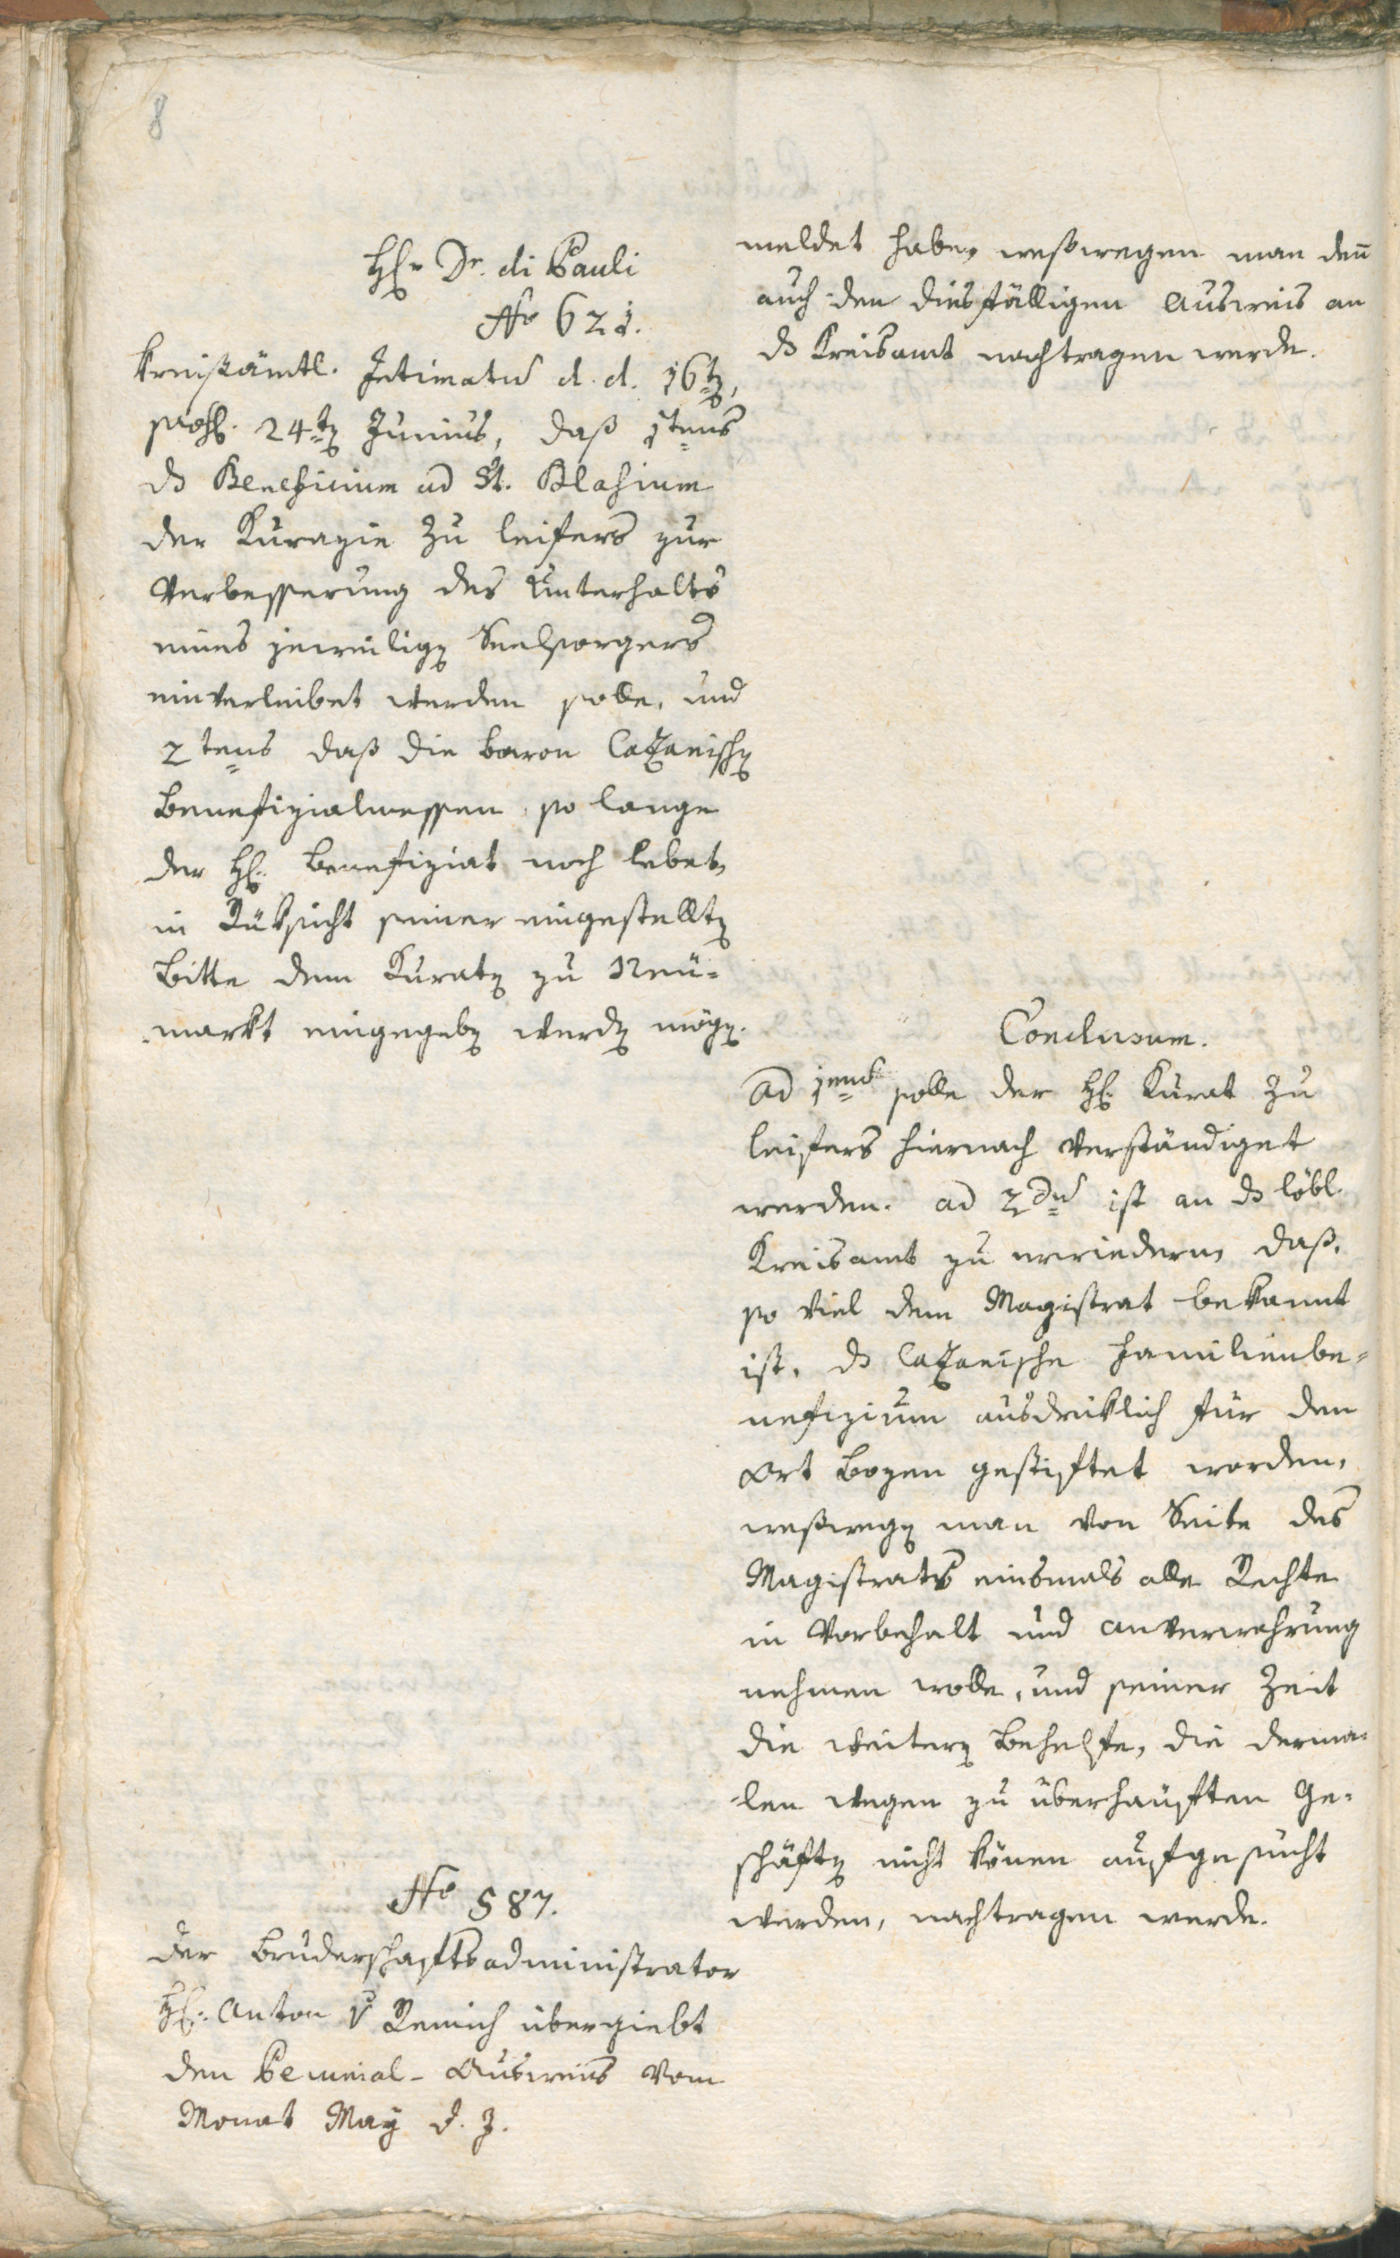 8
H. Dr. di Pauli
No 621.
Kreisämtl. Intimatum d. d. 16t.,
praes. 24t. Junius, daß 1tens
ds Beneficium ad St. Blasium
der Kurazie zu Leifers zur
Verbesserung des Unterhalts
eines jeweilig. Seelsorgers
einverleibet werden solle, und
2tens daß die Baron Cazanisch.
Benefizialmessen, so lange
der H. Benefiziat noch lebet,
in Rüksicht seiner eingestellt.
Bitte dem Kurat. zu Neu=
markt eingegeb. werd. mög.
No 587.
Der Bruderschaftsadministrator
H. Anton v Remich übergiebt
den Pecunial-Ausweis vom
Monat May d. J.
meldet habe, weßwegen man deñ
auch den diesfälligen Ausweis an
ds Kreisamt nachtragen werde.
Conclusum.
ad 1mum solle der H. Kurat zu
Leifers hiernach verständiget
werden. ad 2dum ist an ds löbl.
Kreisamt zu erwiedern, daß,
so viel dem Magistrat bekannt
ist, ds Cazanische Familienbe=
nefizium ausdruklich für den
Ort Bozen gestiftet worden,
weßweg. man von Seite des
Magistrats einsmals alle Rechte
in Vorbehalt und Anverwahrung
nehmen wolle, und seiner Zeit
die weiter. Behelfe, die derma=
len wegen zu überhäuften Ge=
schäft. nicht könen aufgesucht
werden, nachtragen werde.